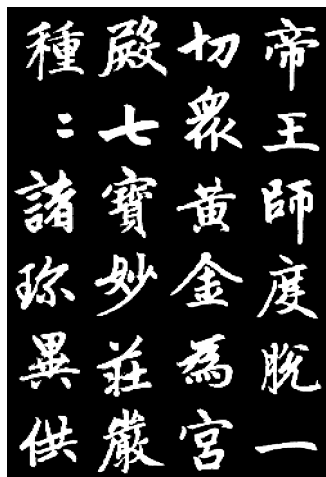 帝王師度脫一
切眾黃金為宮
殿七寶妙莊嚴
種〻諸珎異供